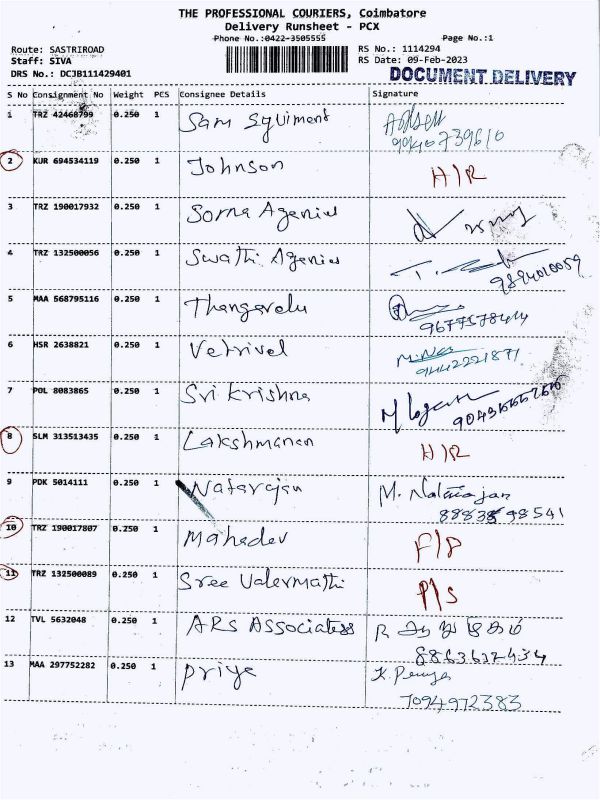 THE PROFESSIONAL COURIERS, Coimbatore
Delivery Runsheet - PCX
Phone No.:0422-3505555 Page No.:1
Route: SASTRIROAD RS No.: 1114294
Staff: SIVA RS Date: 09-Feb-2023
DRS No.: DCJB111429401 DOCUMENT DELIVERY
S No Consignment No Weight PCS Consignee Details Signature
1 TRZ 42468799 0.250 1 Sam
9940739610
2 KUR 694534119 0.250 1 Johnson H/R
3 TRZ 190017932 0.250 1 Sorna Agenies
4 TRZ 132500056 0.250 1 Swathi Agenies
9894010059
5 MAA 568795116 0.250 1 Thangavelu
9677578444
6 HSR 2638821 0.250 1 Vetrivel
9442221871
7 POL 8083865 0.250 1 Sri Krishna
8 SLM 313513435 0.250 1 Lakshmanan H/R
9 PDK 5014111 0.250 1 Natarajan M. Natarajan
98541
10 TRZ 190017807 0.250 1 Mahadev F/P
11 TRZ 132500089 0.250 1 Sree P/S
12 TVL 5632048 0.250 1 ARS Associates R
8863612434
13 MAA 297752282 0.250 1 priya K. Peruya
7094972383